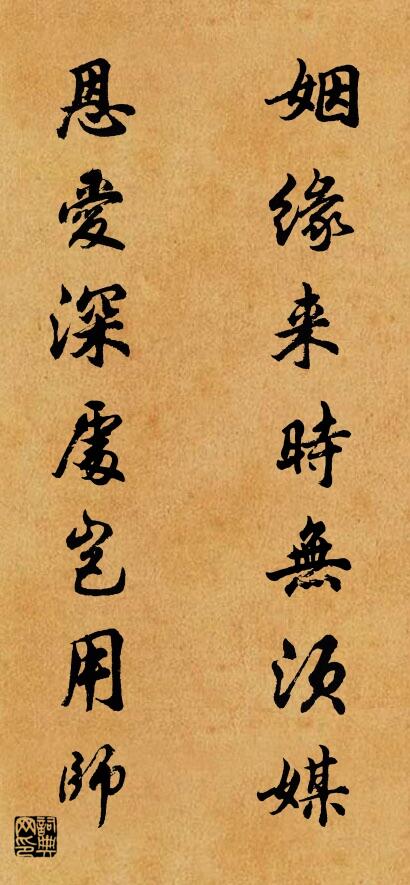 姻缘来時無須媒
恩愛深處豈用師
詞典網印